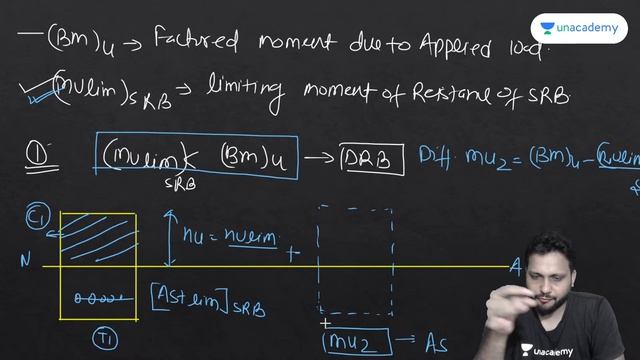 unacademy
— (Bm)u → Factored moment due to Applied load.
(Mulim)SRB → limiting moment of Resistane of SRB
① (Mulim)SRB < (Bm)u → DRB Diff. Mu2 = (Bm)u - (Mulim)
C1
nu = nulim +
N A
[Ast lim]SRB
T1
Mu2 → As
unacademy